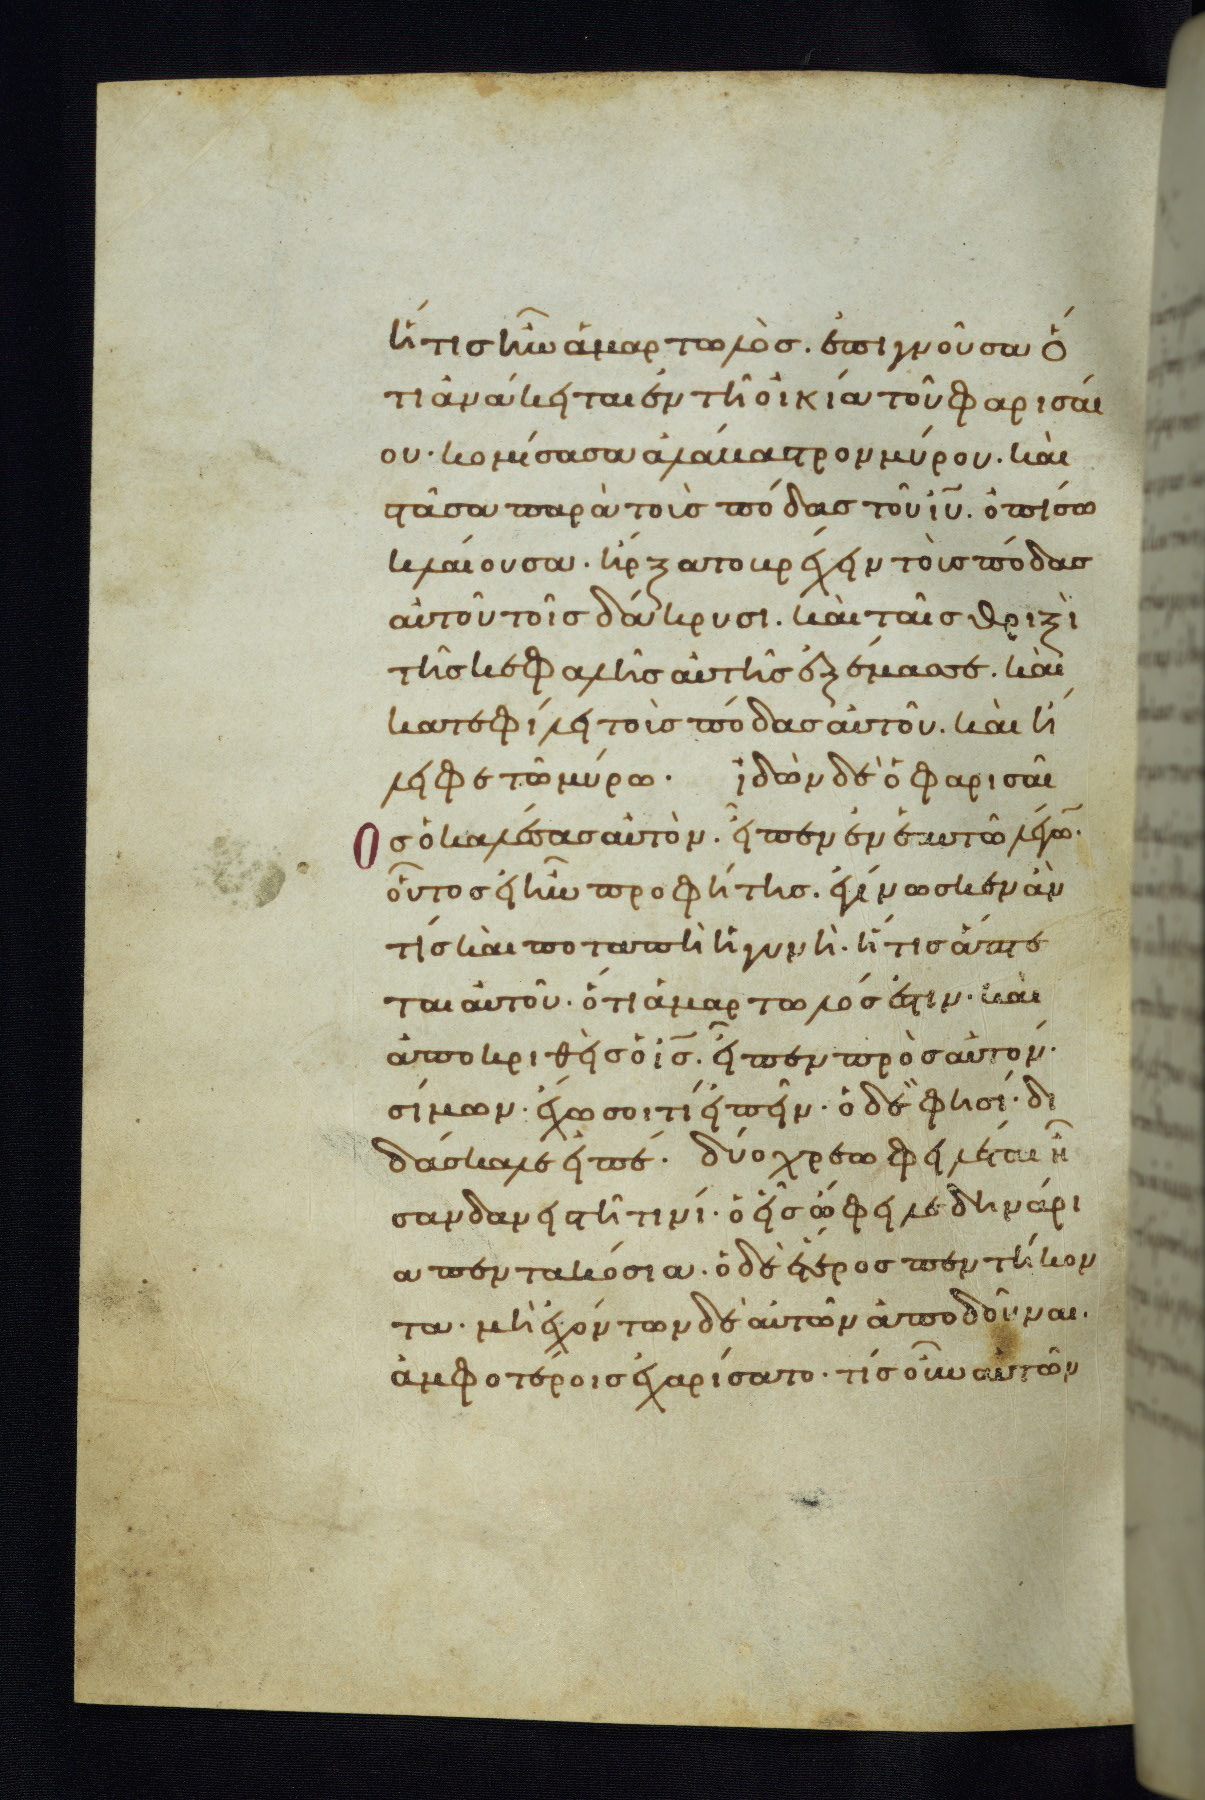 ἥτις ἦν ἁμαρτωλὸσ. ἐπιγνοῦσα ὅ
τι ἀνάκειται ἐν τῆ οἰκία τοῦ φαρισαί
ου· κομίσασα ἀλάβαστρον μύρου. καὶ
στᾶσα παρὰ τοὺς πόδας τοῦ ἰῦ. ὀπίσω
κλαίουσα. ἤρξατο βρέχειν τοὺς πόδας
αὐτοῦ τοῖς δάκρυσι. καὶ ταῖς θριξὶ
τῆς κεφαλῆς αὐτῆς ἐξέμασσε. καὶ
κατεφίλει τοὺς πόδας αὐτοῦ. καὶ ἤ
λειφε τῶ μύρω. ἰδὼν δὲ ὁ φαρισαῖ
Οσ ὁ καλέσας αὐτὸν. εἶπεν ἐν ἑαυτῶ λέγων.
οὗτος εἰ ἦν προφήτης. ἐγίνωσκεν ἂν
τίς καὶ ποταπὴ ἡ γυνὴ. ἥτις ἅπτε
ται αὐτοῦ. ὅτι ἁμαρτωλός ἐστιν. καὶ
ἀποκριθεὶς ὁ ἰς. εἶπεν πρὸς αὐτόν.
σίμων. ἔχω σοι τί εἰπεῖν. ὁ δὲ φησί. δι
δάσκαλε εἰπέ. δύο χρεωφειλέται ἦ
σαν δανειστῆ τινί. ὁ εἷς ὤφειλε δηνάρι
α πεντακόσια. ὁ δὲ ἕτερος πεντήκον
τα. μὴ ἐχόντων δὲ αὐτῶν ἀποδοῦναι.
ἀμφοτέροις ἐχαρίσατο. τίς οὖν αὐτῶν